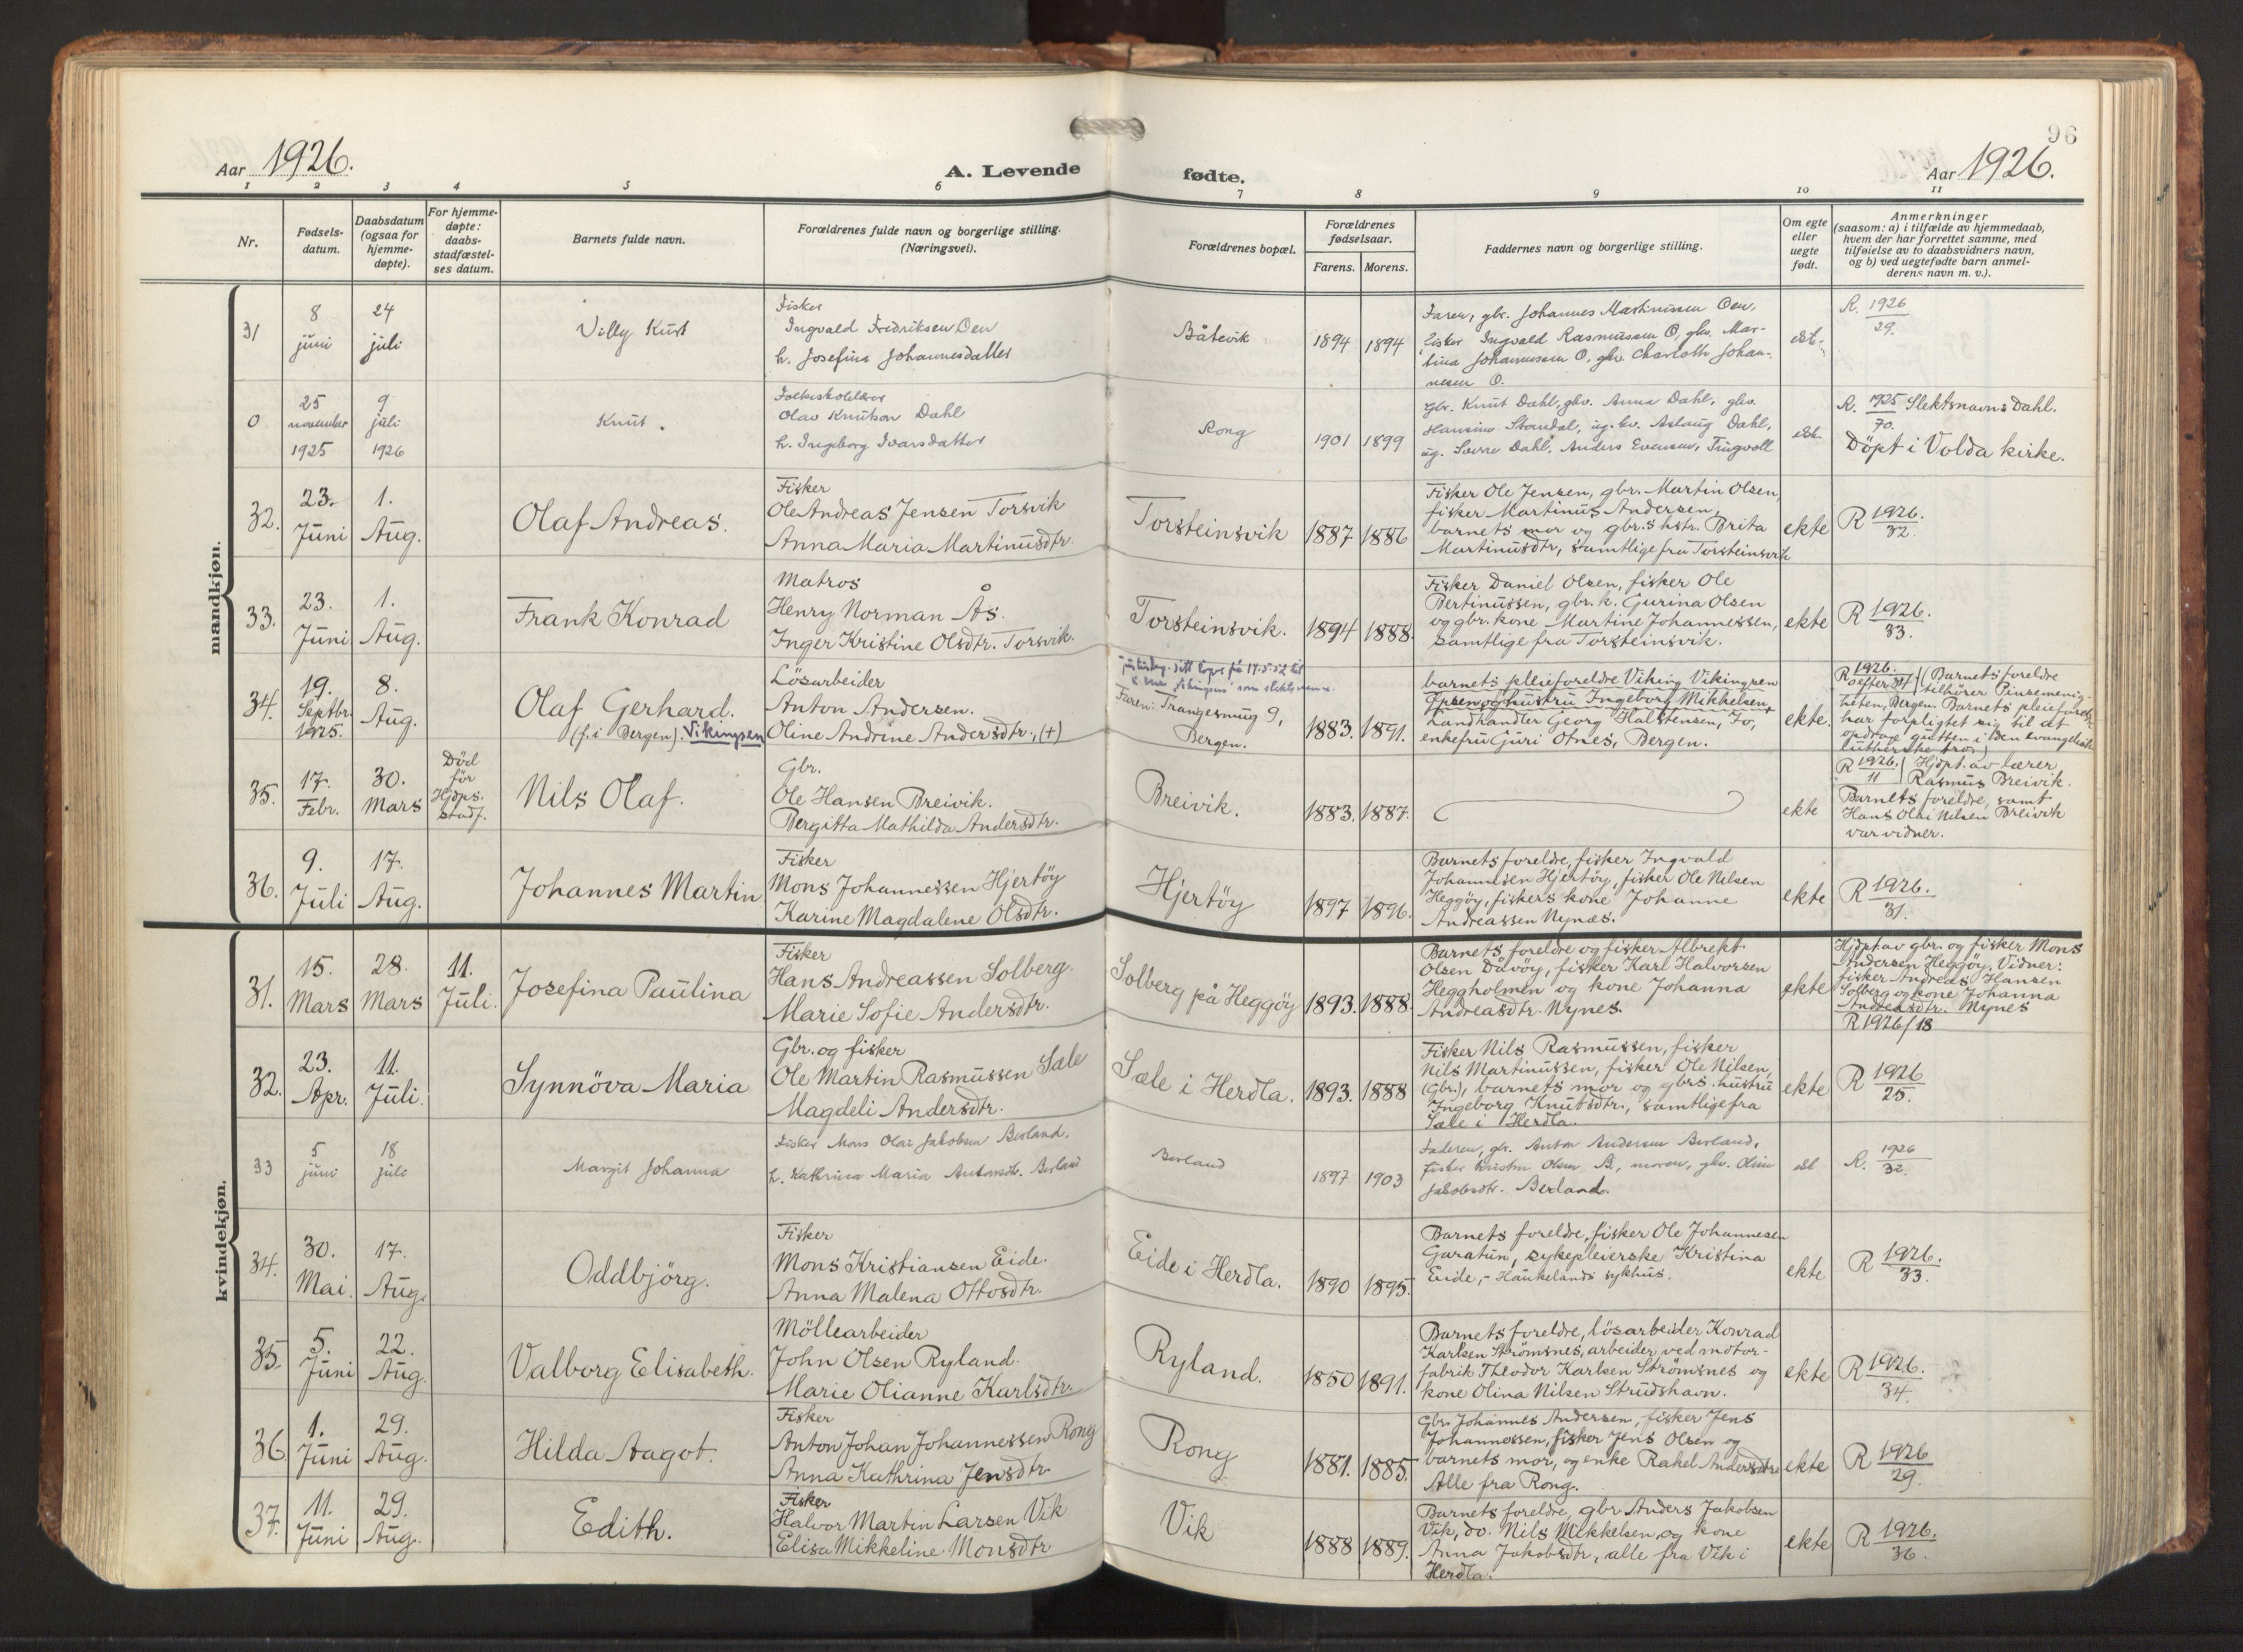 96
Aar 1926.
A. Levende fødte.
Aar 1926.
1 2 3 4 5 6 7 8 9 10 11
Nr.
Fødsels-
datum.
Daabsdatum
(ogsaa for
hjemme-
døpte).
For hjemme-
døpte:
daabs-
stadfæstel-
ses datum.
Barnets fulde navn.
Forældrenes fulde navn og borgerlige stilling.
(Næringsvei).
Forældrenes bopæl.
Forældrenes
fødselsaar.
Farens. Morens.
Faddernes navn og borgerlige stilling.
Om egte
eller
uegte
født.
Anmerkninger
(saasom: a) i tilfælde av hjemmedaab,
hvem der har forrettet samme, med
tilføielse av to daabsvidners navn,
og b) ved uegtefødte barn anmel-
derens navn m. v.).
mandkjøn.
31
8
juni
24
juli
Villy Kurt
Fisker
Ingvald Fredriksen Oen
h. Josefine Johannesdatter
Båtevik
1894 1894
Faren, gbr. Johannes Martinussen Oen,
fisker Ingvald Rasmussen O, gkv. Mar-
tina Johannessen O, gkv Charlotte Johan-
nesen O.
ekt.
R. 1926
29.
0
25
november
1925
9
juli
1926
Knut.
Folkeskolelærer
Olav Knutson Dahl
h. Ingeborg Ivarsdatter
Rong
1901 1899
Gbr. Knut Dahl, gkv. Anna Dahl, gkv.
Hansine Standal, ug. kv. Aslaug Dahl,
ug. Sverre Dahl, Anders Evensen, Tingvoll
ekt.
R. 1925 Slektsnavn: Dahl.
70.
Döpt i Volda kirke.
32.
23.
Juni
1.
Aug.
Olaf Andreas.
Fisker
Ole Andreas Jensen Torsvik
Anna Maria Martinusdtr.
Torsteinsvik
1887 1886
Fisker Ole Jensen, gbr. Martin Olsen,
fisker Martinus Andersen,
barnets mor og gbr.s hstr. Brita
Martinusdtr, samtlige fra Torsteinsvik
ekte
R 1926.
32.
33.
23.
Juni
1.
Aug.
Frank Konrad
Matros
Henry Norman Ås.
Inger Kristine Olsdtr. Torsvik.
Torsteinsvik.
1894 1888.
Fisker Daniel Olsen, fisker Ole
Bertinussen, gbr. k. Gurina Olsen
og gbr. kone Martine Johannessen,
samtlige fra Torsteinsvik.
ekte
R 1926.
33.
34.
19.
Septbr.
1925.
8.
Aug.
Olaf Gerhard.
(f. i Bergen). Vikingsen
Lösarbeider
Anton Andersen.
Oline Andrine Andersdtr., (+)
Faren: Trangesmug 9,
Bergen.
1883. 1891.
barnets pleieforeldre Viking Vikingsen
og hustru Ingeborg Mikkelsen,
Landhandler Georg Halstensen, Io,
enkefru Guri Otnes, Bergen.
ekte.
R 1926.
efter 34 (Barnets foreldre
tilhörer Pinsemenig-
heten, Bergen. Barnets pleieforeldre
har forpligtet sig til at
opdrage gutten i den evangelisk
lutherske tro)
35.
17.
Febr.
30.
Mars
Död
för
Hjdps.
stadf.
Nils Olaf.
Gbr.
Ole Hansen Breivik.
Bergitta Mathilda Andersdtr.
Breivik.
1883. 1887.
ekte
R 1926. Hjdpt. av lærer
11 Rasmus Breivik.
Barnets foreldre, samt
Hans Olai Nilsen Breivik
var vidner.
36.
9.
Juli
17.
Aug.
Johannes Martin
Fisker
Mons Johannessen Hjertöy
Karine Magdalene Olsdtr.
Hjertöy
1897 1896.
Barnets foreldre, fisker Ingvald
Johannesen Hjertöy, fisker Ole Nilsen
Heggöy, fiskers kone Johanne
Andreassen Nynæs.
ekte
R 1926.
31.
kvindekjøn.
31.
15.
Mars
28.
Mars
11.
Juli.
Josefina Paulina
Fisker
Hans Andreassen Solberg.
Marie Sofie Andersdtr.
Solberg på Heggöy
1893. 1888.
Barnets foreldre og fisker Albrekt
Olsen Dåvöy, fisker Karl Halvorsen
Heggholmen og kone Johanna
Andreasdtr. Nynes.
ekte
Hjdpt. av gbr. og fisker Mons
Andersen Heggöy. Vidner:
fisker Andreas Hansen
Solberg og kone Johanna
Andreasdtr. Nynes
R 1926/18
32.
23.
Apr.
11.
Juli.
Synnöva Maria
Gbr. og fisker
Ole Martin Rasmussen Sæle
Magdeli Andersdtr.
Sæle i Herdla.
1893. 1888
Fisker Nils Rasmussen, fisker
Nils Martinussen, fisker Ole Nilsen,
(Gbr.), barnets mor og gbrs. hustru
Ingeborg Knutsdtr., samtlige fra
Sæle i Herdla.
ekte
R 1926
25.
33
5
juni
18
juli
Margit Johanna
Fisker Mons Olai Jakobsen Berland,
h. Kathrina Maria Antonsdtr. Berland
Berland
1897 1903
Faderen, gbr. Anton Andersen Berland,
fisker Kristen Olsen B., moren, gkv. Oline
Jakobsdtr. Berland.
ekt
R. 1926
32.
34.
30.
Mai.
17.
Aug.
Oddbjörg.
Fisker
Mons Kristiansen Eide.
Anna Malena Ottosdtr.
Eide i Herdla.
1890 1895.
Barnets foreldre, fisker Ole Johannesen
Garatun, sykepleierske Kristina
Eide, - Haukelands sykhus.
ekte
R 1926.
33.
35.
5.
Juni
22.
Aug.
Valborg Elisabeth.
Möllearbeider
John Olsen Ryland.
Marie Olianne Karlsdtr.
Ryland.
1850 1891.
Barnets foreldre, lösarbeider Konrad
Karlsen Strömsnes, arbeider ved motor-
fabrik Theodor Karlsen Strömsnes og
kone Olina Nilsen Strudshavn.
ekte
R 1926.
34.
36
1.
Juni
29.
Aug.
Hilda Aagot.
Fisker
Anton Johan Johannessen Rong
Anna Kathrina Jensdtr.
Rong
1881. 1885.
Gbr. Johannes Andersen, fisker Jens
Johannessen, fisker Jens Olsen og
barnets mor, og enke Rakel Andersdtr.
Alle fra Rong.
ekte
R 1926
29.
37.
11.
Juni
29.
Aug.
Edith.
Fisker
Halvor Martin Larsen Vik
Elisa Mikkeline Monsdtr
Vik
1888 1889.
Barnets foreldre, gbr. Anders Jakobsen
Vik, do. Nils Mikkelsen, og kone
Anna Jakobsdtr, alle fra Vik i
Herdla.
ekte
R 1926.
36.